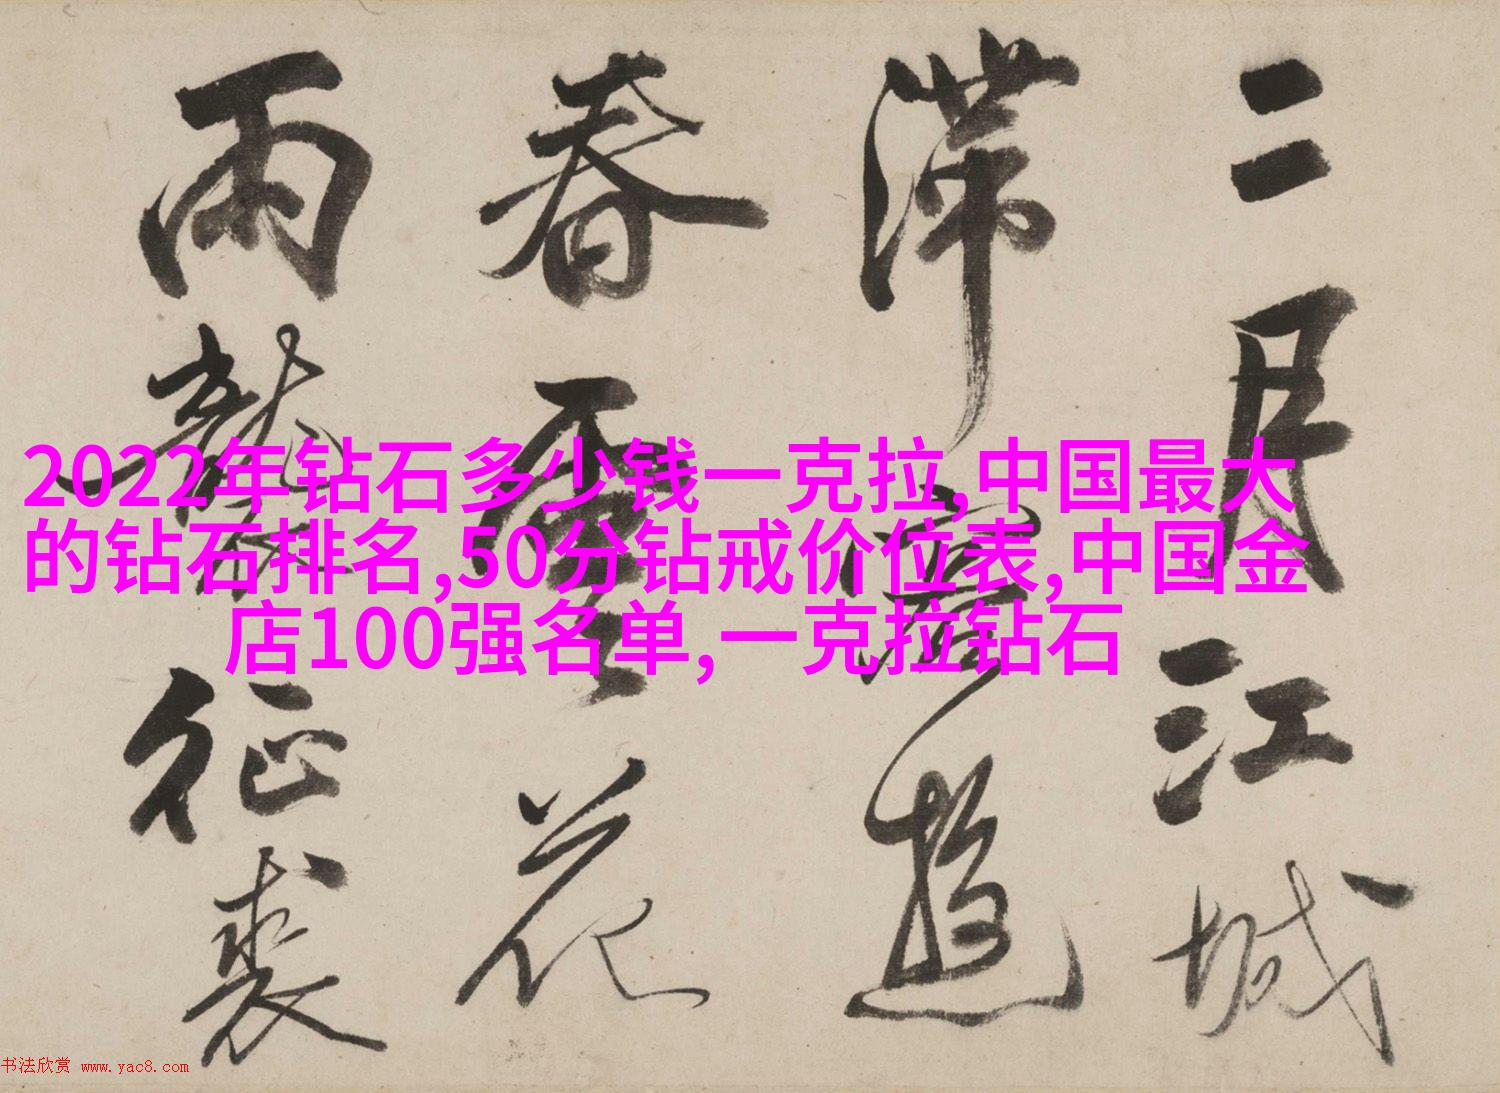 二月江城
滞宦游
春雪花
雨襲征裘
2022年钻石多少钱一克拉,中国最大
的钻石排名,50分钻戒价位表,中国金
店100强名单,一克拉钻石
书法欣赏 www.yac8.com